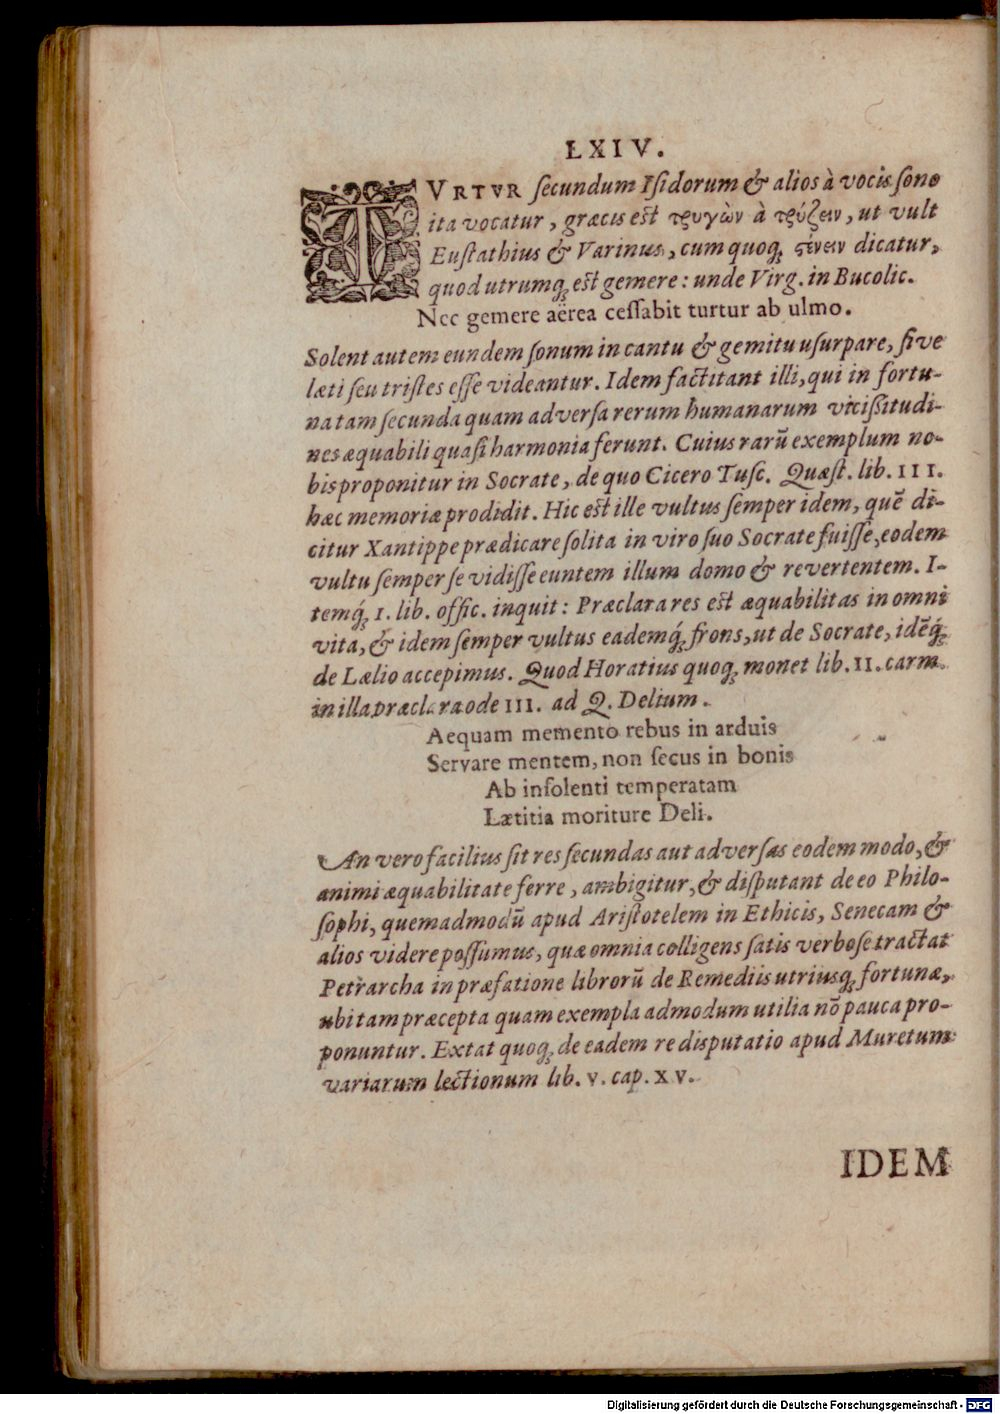 LXIV.
TVRTVR secundum Isidorum & alios à vocis sono
ita vocatur, græcis est τρυγὼν à τρύζειν, ut vult
Eustathius & Varinus, cum quoq; στένειν dicatur,
quod utrumq; est gemere: unde Virg. in Bucolic.
Nec gemere aërea cessabit turtur ab ulmo.
Solent autem eundem sonum in cantu & gemitu usurpare, sive
læti seu tristes esse videantur. Idem factitant illi, qui in fortu-
natam secunda quam adversa rerum humanarum vicissitudi-
nes æquabili quasi harmonia ferunt. Cuius rarū exemplum no-
bis proponitur in Socrate, de quo Cicero Tusc. Quæst. lib. III.
hæc memoriæ prodidit. Hic est ille vultus semper idem, quē di-
citur Xantippe prædicare solita in viro suo Socrate fuisse, eodem
vultu semper se vidisse euntem illum domo & revertentem. I-
temq́; I. lib. offic. inquit: Præclara res est æquabilitas in omni
vita, & idem semper vultus eademq́; frons, ut de Socrate, idēq́;
de Lælio accepimus. Quod Horatius quoq; monet lib. II. carm.
in illa præclara ode III. ad Q. Delium.
Aequam memento rebus in arduis
Servare mentem, non secus in bonis
Ab insolenti temperatam
Lætitia moriture Deli.
An vero facilius sit res secundas aut adversas eodem modo, &
animi æquabilitate ferre, ambigitur, & disputant de eo Philo-
sophi, quemadmodū apud Aristotelem in Ethicis, Senecam &
alios videre possumus, quæ omnia colligens satis verbose tractat
Petrarcha in præfatione librorū de Remediis utriusq; fortunæ,
ubi tam præcepta quam exempla admodum utilia nō pauca pro-
ponuntur. Extat quoq; de eadem re disputatio apud Muretum
variarum lectionum lib. V. cap. XV.
IDEM
Digitalisierung gefördert durch die Deutsche Forschungsgemeinschaft - DFG